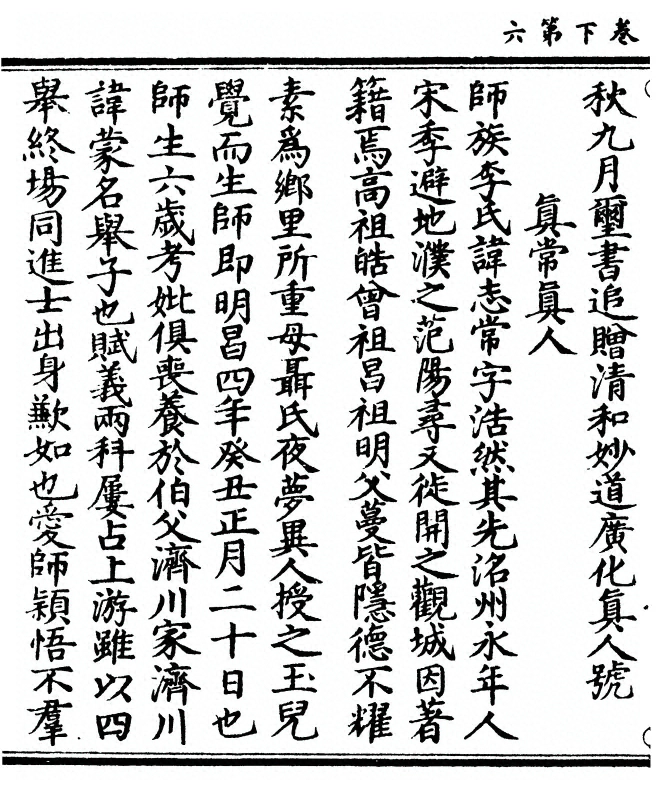 卷下第六
秋九月璽書追贈清和妙道廣化眞人號
眞常眞人
師族李氏諱志常字浩然其先洺州永年人
宋季避地濮之范陽尋又徙開之觀城因著
籍焉高祖皓曾祖昌祖明父蔓皆隱德不耀
素爲鄉里所重母聶氏夜夢異人授之玉兒
覺而生師即明昌四年癸丑正月二十日也
師生六歲考妣俱喪養於伯父濟川家濟川
諱蒙名舉子也賦義兩科屢占上游雖以四
舉終場同進士出身歉如也愛師穎悟不羣